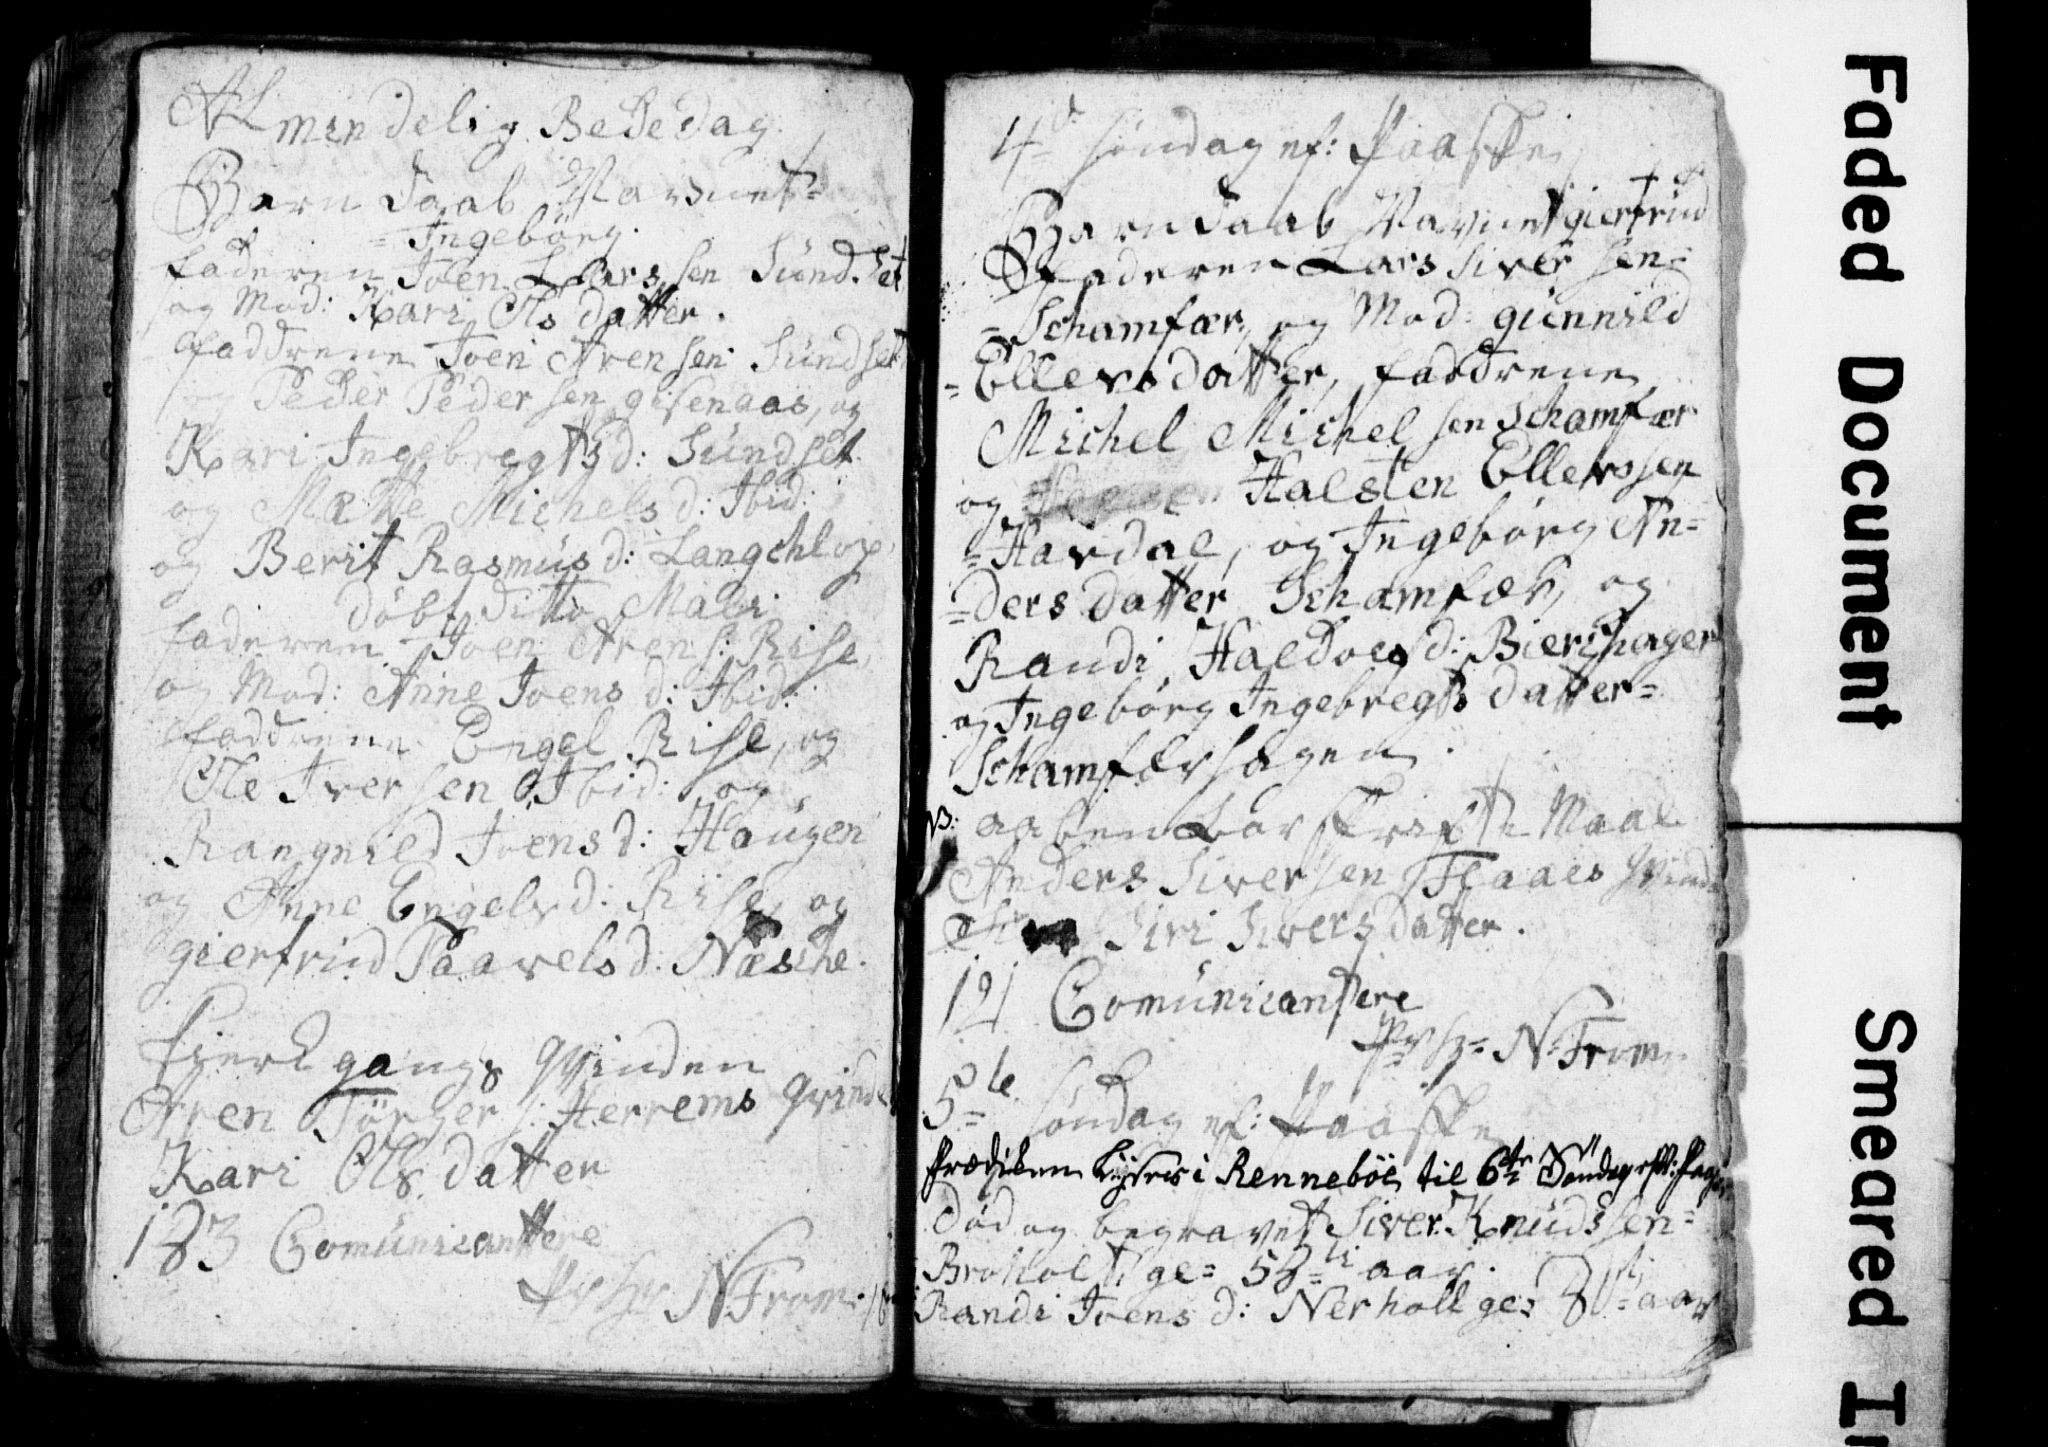 Almindelig Bededag
Barn Daab Navnet=
=Ingebörg.
faderen Joen Larssen Sündset
og Mod: Kari Olsdatter.
faddrene Joen Arensen Sündset
og Peder Pedersen gisenaas, og
Kari Ingebregtsd: Sündset
og Mætte Michelsd: Ibid:
og Berit Rasmusd: Langchlop,
döbt ditto Mali
faderen Joen Arens: Rise,
og Mod: Anne Joensd: Ibid:
faddrene Engel Rise, og
Ole Iversen Ibid: og
Rangnild Joensd: Haugen
og Anne Engelsd: Rise, og
giertrud Paavelsd: Næsche.
gangs Qvinden
Aren Törger s: Herrems Qvinde
Kari Olsdatter
183 Comünicantere
N Trom
4de Søndag ef: Paaske
Barn Daab Navnet giertrüd
faderen Lars Siversen=
=Schamfær, og Mod: günnild
=Ellevsdatter, faddrene
Michel Michelsen Schamfær
og Halsten Ellevssen
=Hardal, og Ingebörg An=
=dersdatter Schamfær, og
Randi Haldoesd: Bierchager
og Ingebörg Ingebregts datter=
Schamfærhagen.
NB: aabenbar Skrifte Maal
Anders Siversen Qvinde
Siri Siversdatter.
121 Comünicantere
N= Trom
5te Søndag ef: Paaske
Prædiken i Renneböe til 6te Søndag
Död og begravet Siver Knüdssen=
Broholt ge= 58 aar.
Randi Joensd: Nerholl ge= aar
Faded Document
Smeared In